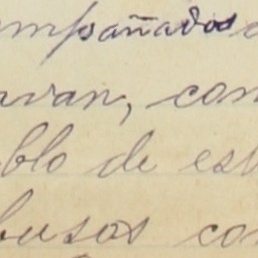 mpañados
avan, com
blo de est
busos con